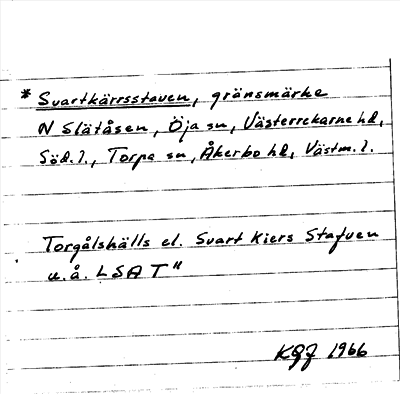 * Svartkärrsstaven, gränsmärke
N Slätåsen, Öja sn, Västerrekarne hd,
Söd. l., Torpa sn, Åkerbo hd, Västm. l.
Torgålshälls el. Svart Kiers Stafven
u.å. LSA T"
KGJ 1966